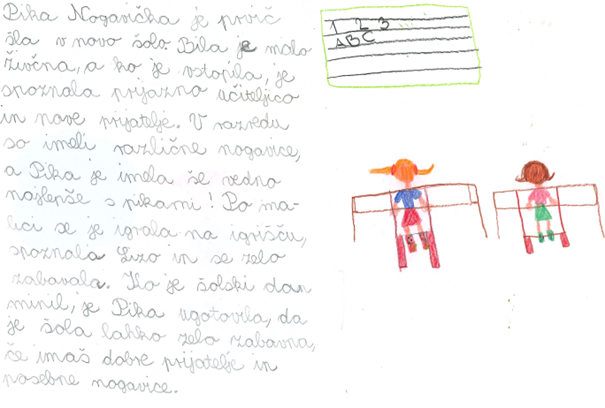 Pika Nogavička je prvič
šla v novo šolo. Bila je malo
živčna, a ko je vstopila, je
spoznala prijazno učiteljico
in nove prijatelje. V razredu
so imeli različne nogavice,
a Pika je imela še vedno
najlepše s pikami! Po ma-
lici se je igrala na igrišču,
spoznala Lizo in se zelo
zabavala. Ko je šolski dan
minil, je Pika ugotovila, da
je šola lahko zelo zabavna,
če imaš dobre prijatelje in
posebne nogavice.
1 2 3
ABC